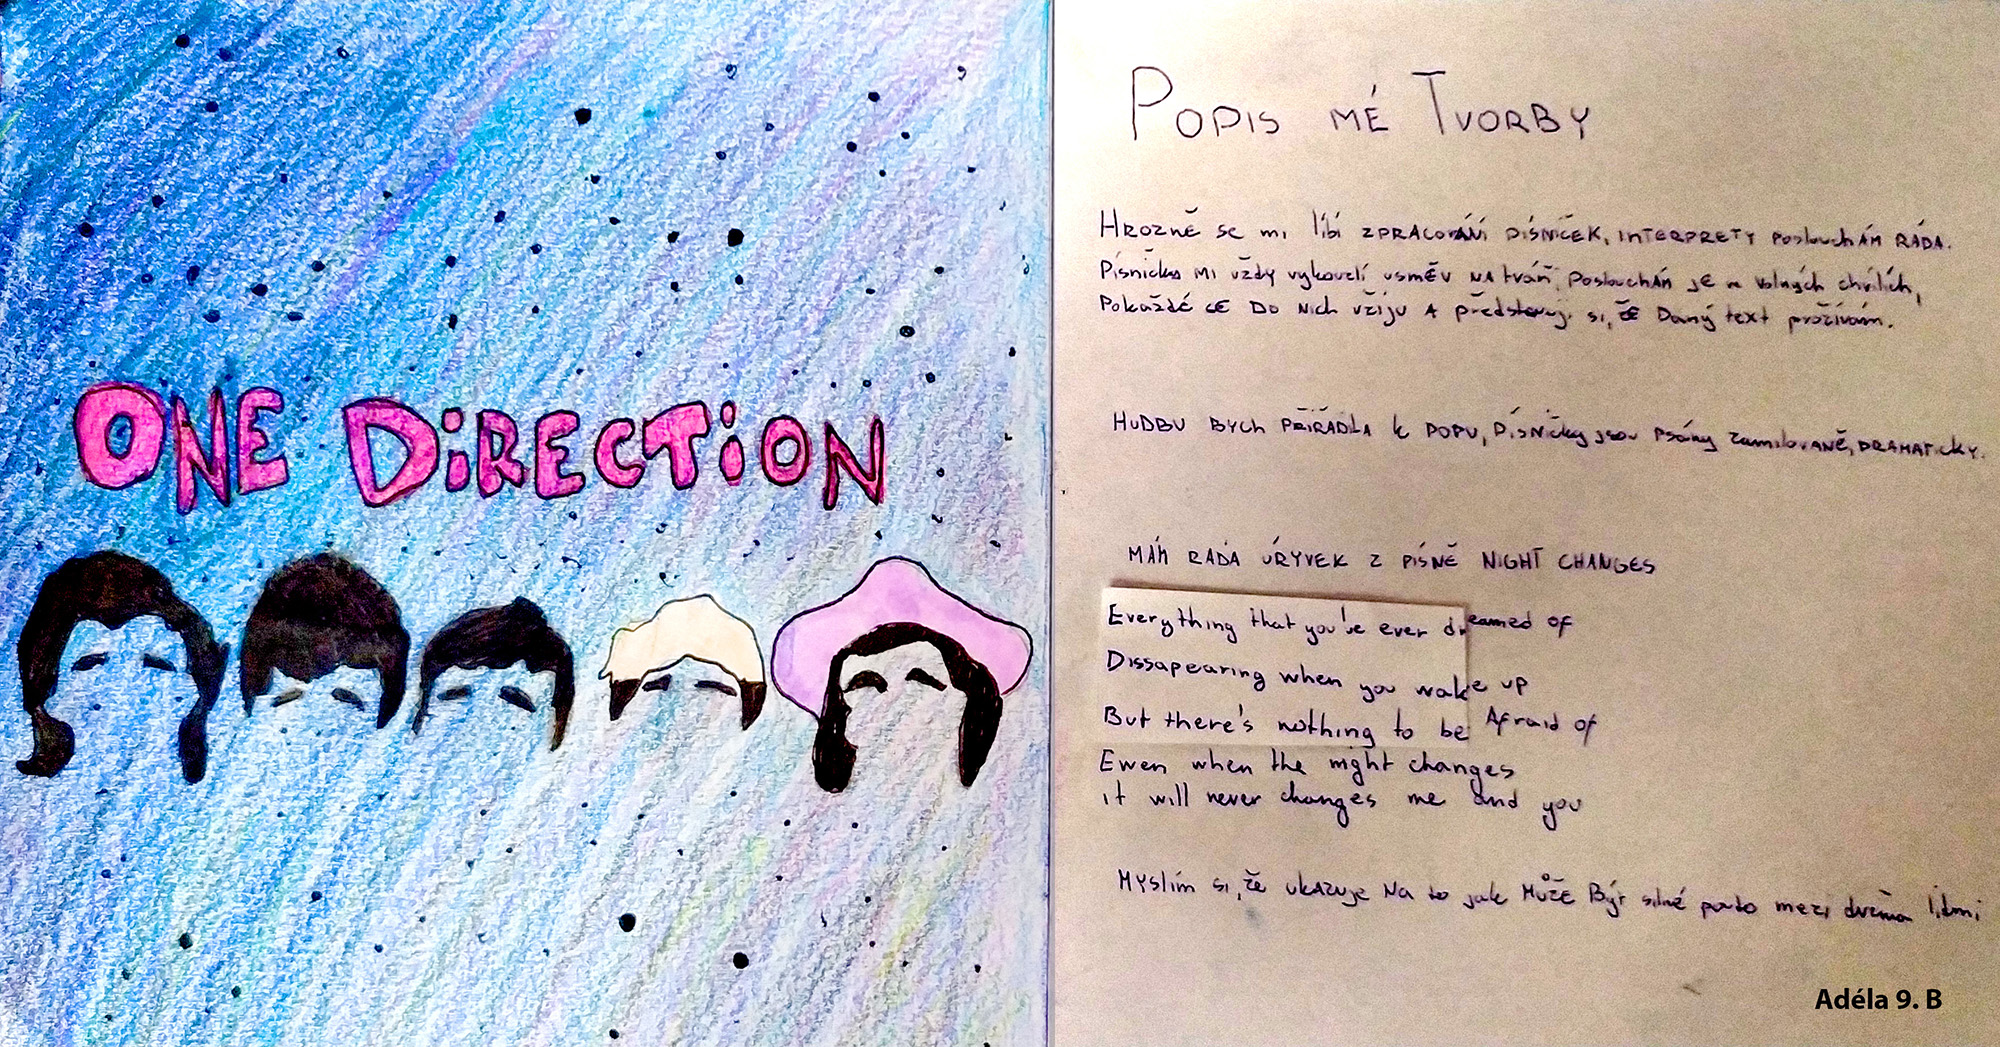 ONE DIRECTION
POPIS MÉ TVORBY
HROZNĚ SE MI líbí ZPRACOVÁNÍ PÍSNIČEK, INTERPRETY POSLOUCHÁM RÁDA.
PÍSNIČKA MI VŽDY vykouzlí úsměv NA tváři, POSLOUCHÁM JE ve volných chvílích,
POKAŽDÉ SE DO NICH VŽIJU A představuji si, že Daný text prožívám.
HUDBU BYCH PŘIŘADILA k POPU, PÍSNIČKY jsou Psány zamilovaně, DRAMATICKY.
MÁM RÁDA ÚRYVEK Z PÍSNĚ NIGHT CHANGES
Everything that you've ever dreamed of
Dissapearing when you wake up
But there's nothing to be Afraid of
Ewen when the night changes
it will never changes me and you
MYSLÍM SI, že UKAZUJE NA to jak MŮŽE BÝT silné pouto mezi dvěma lidmi
Adéla 9. B